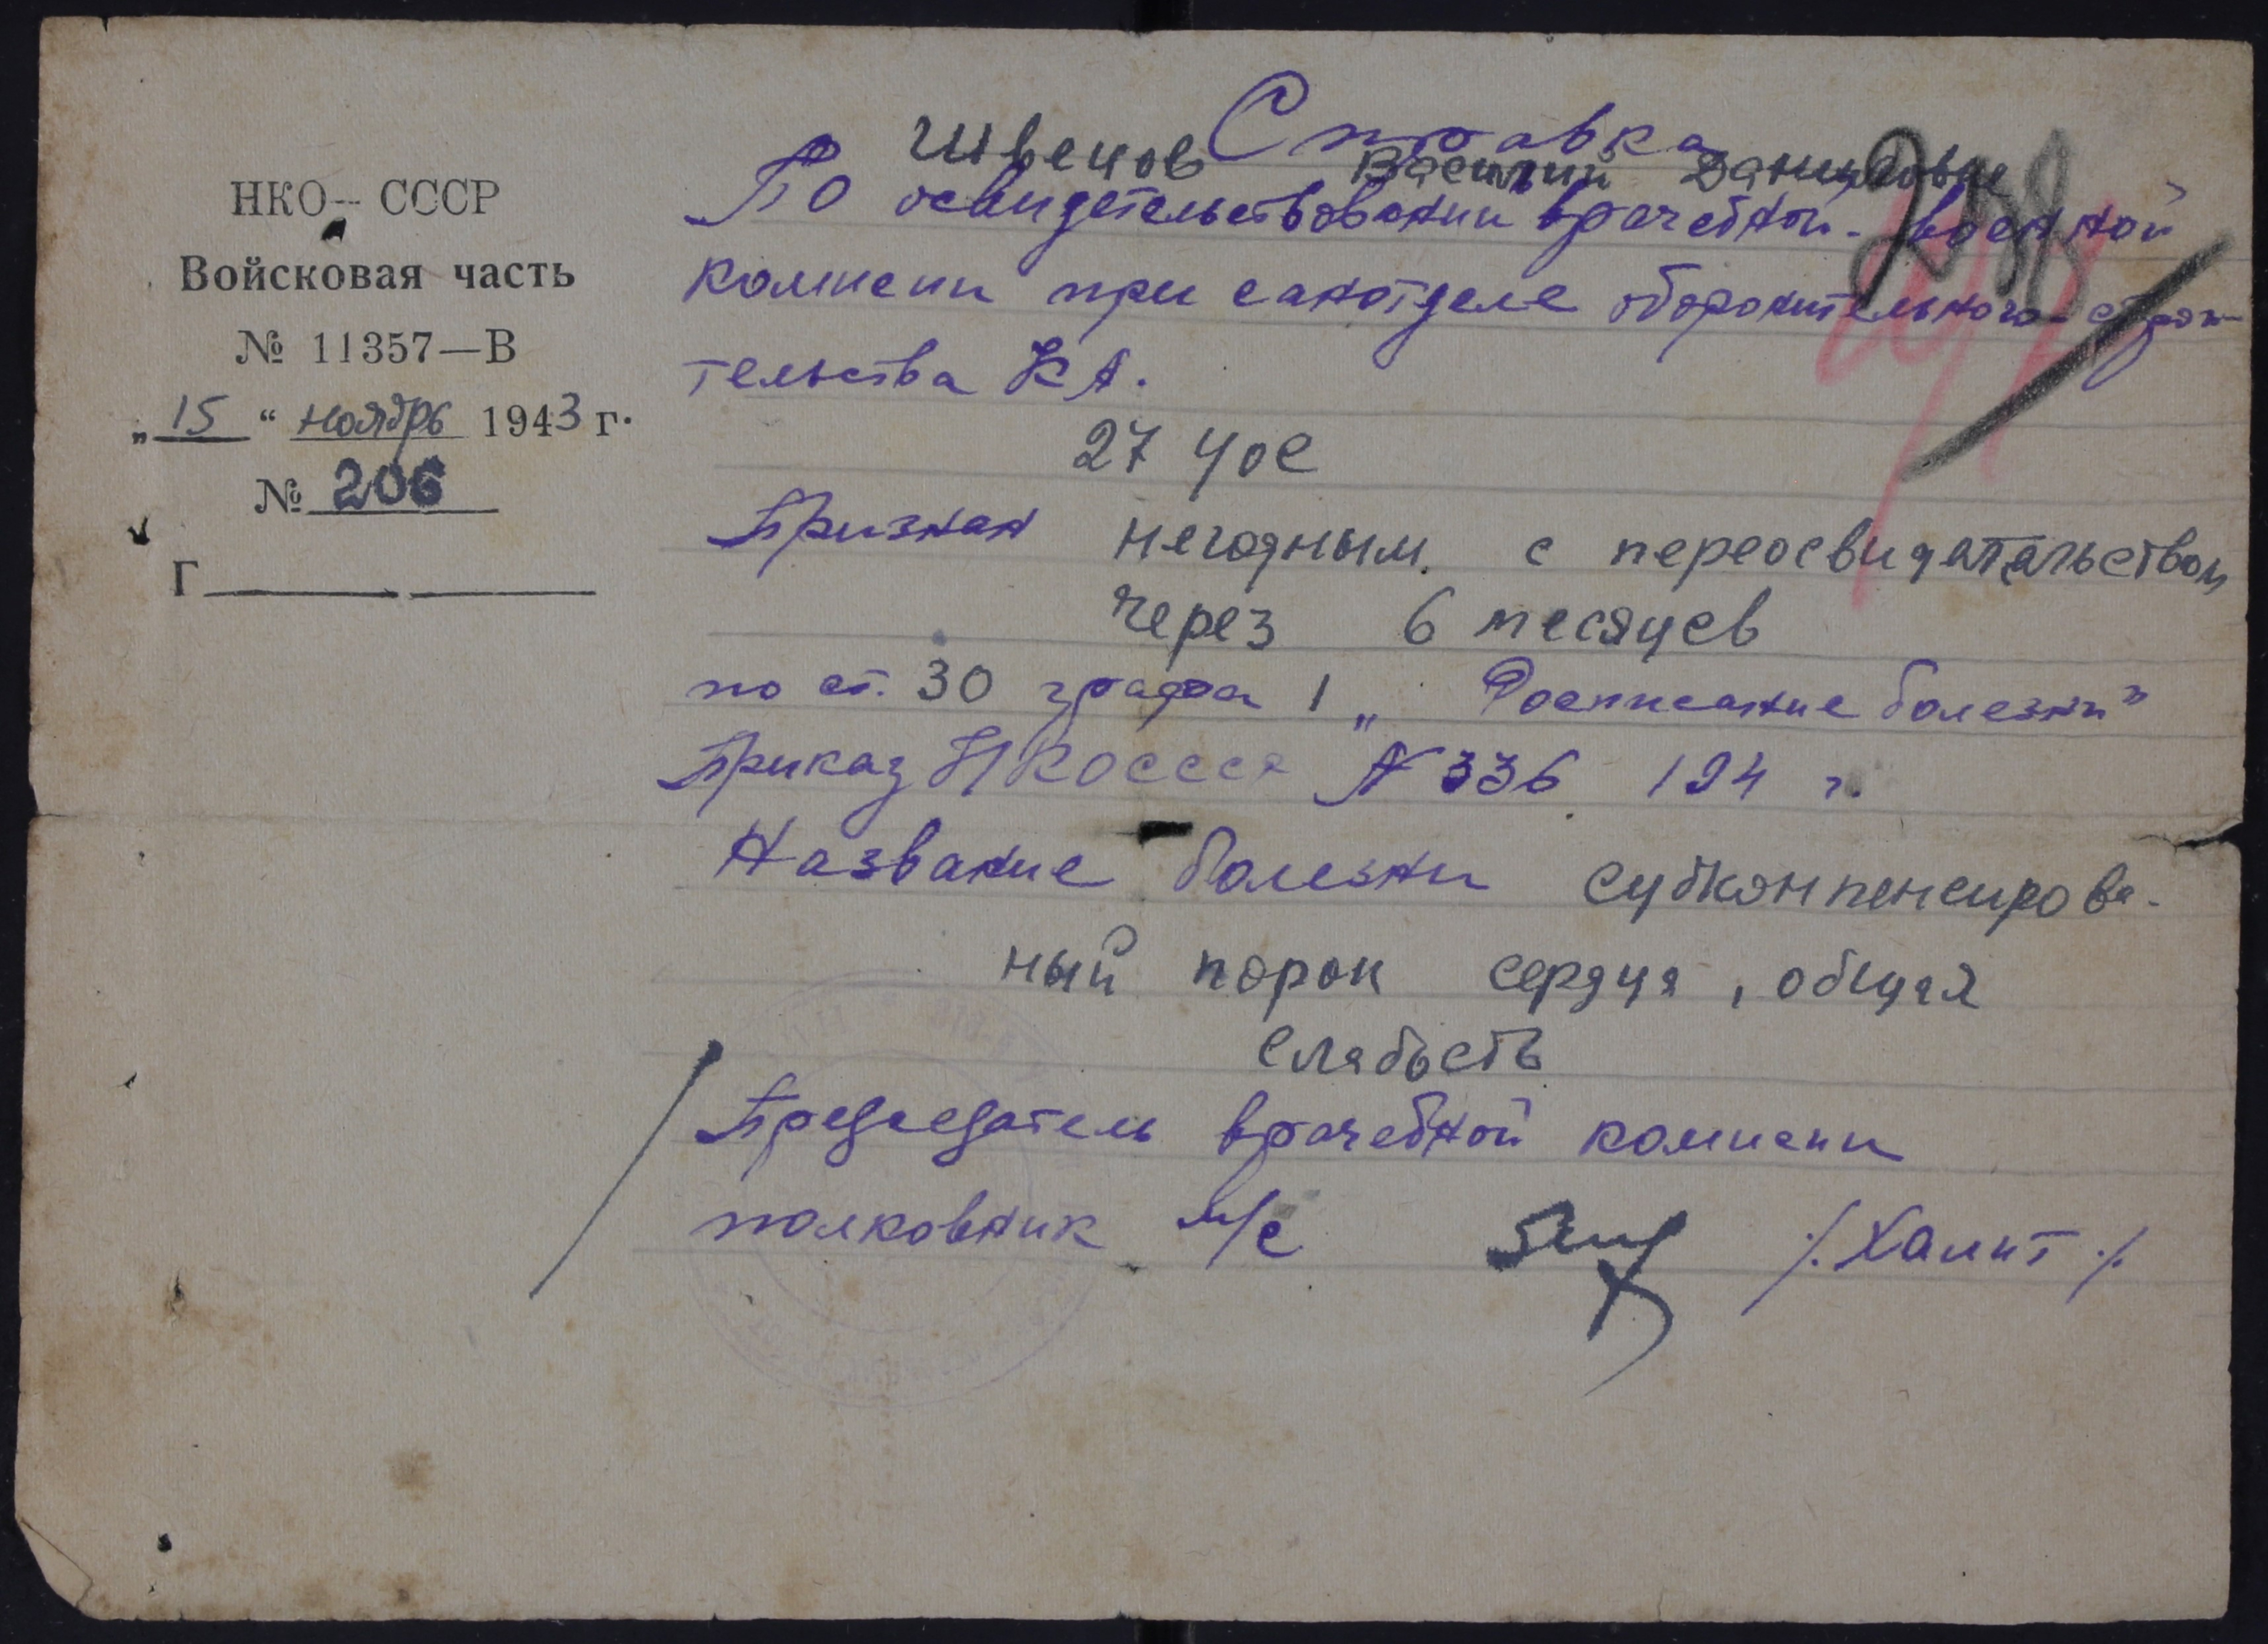 НКО — СССР
Войсковая часть
№ 11357—В
„15“ ноябрь 1943 г.
№ 206
Г
Справка
Швецов Василий Данилович
258
По освидетельствовании врачебной-военной
комисии при санотделе оборонительного строи-
тельства КА.
27 УОС
Признан негодным с переосвидетельством
через 6 месяцев
по ст. 30 графа 1 „Росписание болезни"
Приказ НКОСССР № 336 194 г.
Название болезни субкомпенсирова-
ный порок сердця, общая
слабость
Председатель врачебной комисии
полковник м/с
/.Хамит./